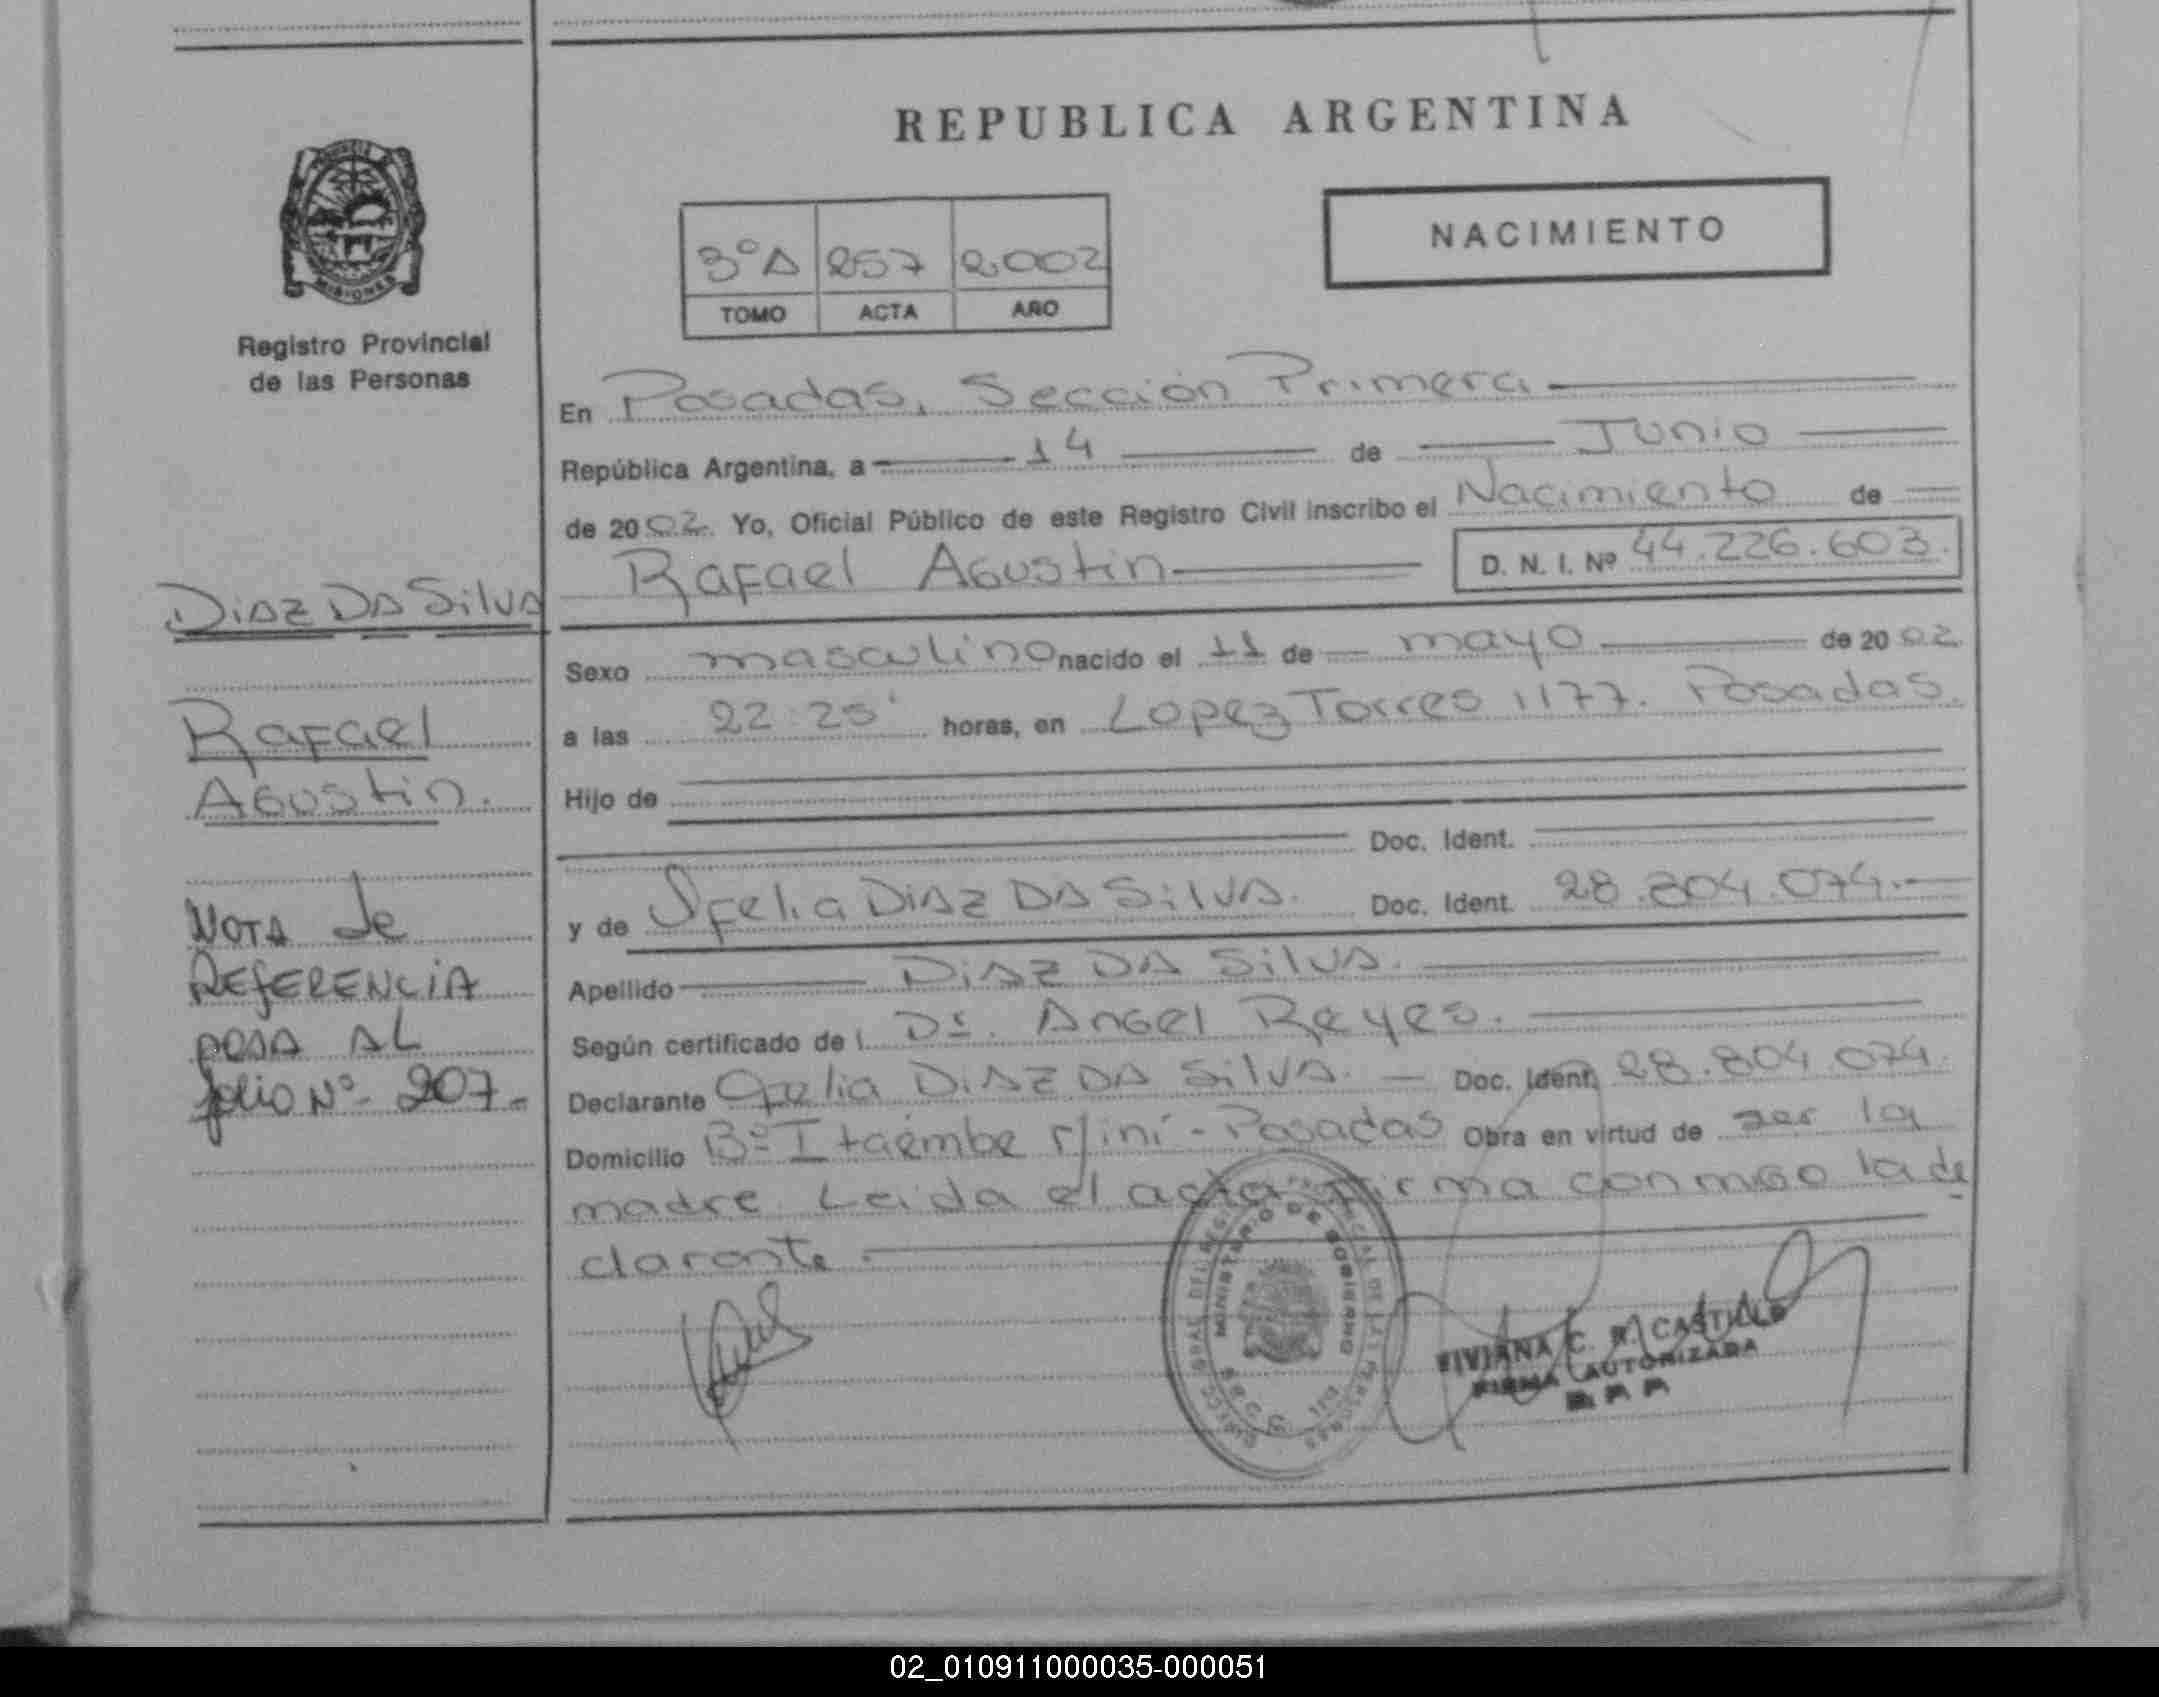 REPUBLICA ARGENTINA
NACIMIENTO
PROVINCIA DE
MISIONES
Registro Provincial
de las Personas
3º A 257 2.002
TOMO ACTA AÑO
En Posadas, Sección Primera
República Argentina, a 14 de Junio
de 2002 Yo, Oficial Público de este Registro Civil inscribo el Nacimiento de
Rafael Agustin D. N. I. Nº 44.226.603.
Sexo masculino nacido el 11 de mayo de 2002
a las 22:25' horas, en Lopez Torres 1177. Posadas.
Hijo de
Doc. Ident.
y de Ofelia DIAZ DA SilVA. Doc. Ident. 28.804.074.
Apellido DiAZ DA SilVA.
Según certificado de l Dr. Angel Reyes.
Declarante Ofelia DIAZ DA SilVA. Doc. Ident. 28.804.074.
Domicilio Bº Itaembe Mini - Posadas Obra en virtud de ser la
madre. Leida el acta firma conmigo la de
clarante.
DiAZ DA SilVA
Rafael
Agustin.
NOTA de
REfERENCiA
pasa AL
folio Nº 207.-
MINISTERIO DE GOBIERNO
VIVIANA C. R. CASTILLO
FIRMA AUTORIZADA
R P P
02_010911000035-000051